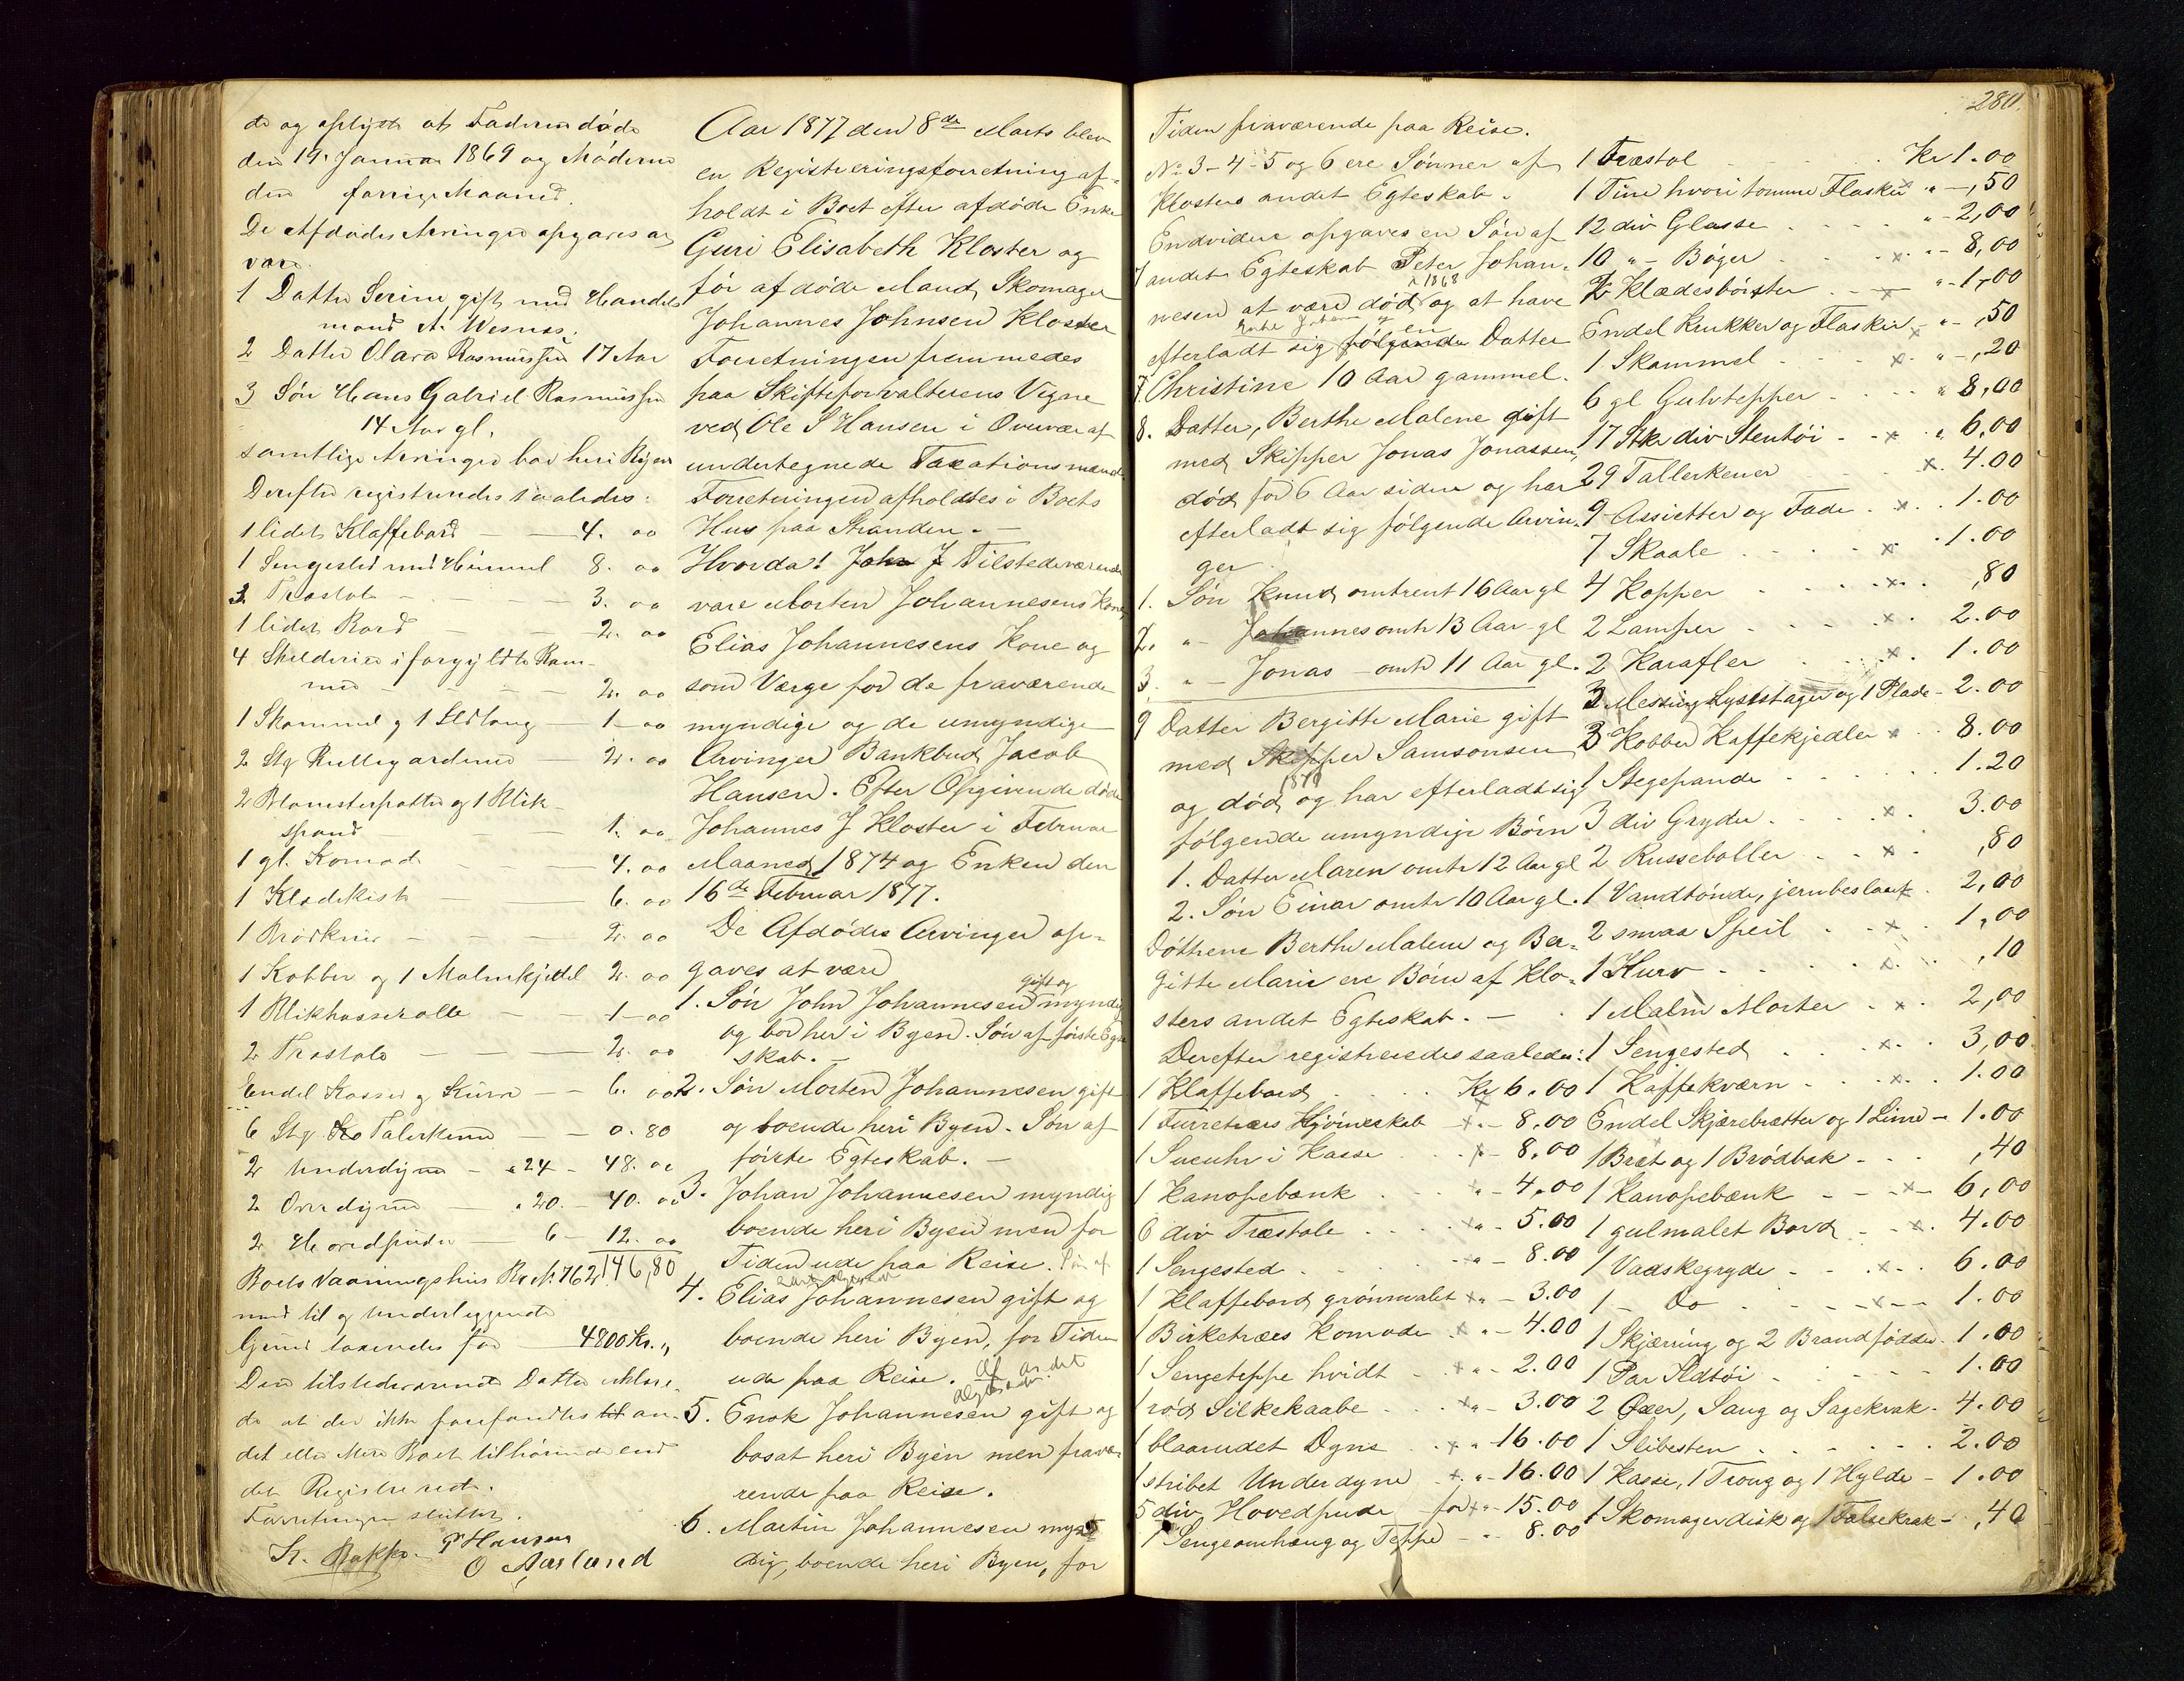 de og oplyste at Faderen døde
den 19. Januar 1869 og Moderen
den forrige Maaned.
De Afdødes Arvinger opgaves at
være
1 Datter Serine gift med Handels
mand A. Wesnæs.
2 Datter Olava Rasmussen 17 Aar
3 Søn Hans Gabriel Rasmussen
14 Aar gl.
samtlige Arvinger bor heri Byen
Derefter registreredes saaledes:
1 lidet Klaffebord — 4. 00
1 Sengested med Himmel 8. 00
3 Træstole — 3. 00
1 lidet Bord — 2. 00
4 Skilderier i forgyldte Ram-
mer — 2. 00
1 Skammel og 1 Ildtang — 1 — 00
2 Stg Rullegardiner — 2. 00
2 Blomsterpotter og 1 Blik-
spand — 1. 00
1 gl. Komode — 4. 00
1 Klædekiste — 6. 00
1 Brødkniv — 2. 00
1 Kobber og 1 Malmkjedel 2. 00
1 Blikkasserolle — 1 — 00
2 Træstole — 2. 00
Endel Kasser og Kurve — 6. 00
6 Stg Talerkener — 0. 80
2 Underdyner — a 24 — 48. 00
2 Overdyner — " 20. — 40. 00
2 Hovedpuder — 6 — 12. 00
146,80
Boets Vaaningshus No 762
med til og underliggende
Grund taxeredes for — 4800 Kr. „
Den tilstedeværende Datter erklære-
de at der ikke forefandtes til an-
det eller mere Boet tilhørende end
det Registrerede.
Forretningen sluttet.
P Hansen
O Aarland
Aar 1877 den 8de Marts blev
en Registreringsforretning af-
holdt i Boet efter afdøde Enke
Guri Elisabeth Kloster og
før afdøde Mand, Skomager
Johannes Johnsen Kloster
Forretningen fremmedes
paa Skifteforvalterens Vegne
ved Ole S Hansen i Overvær af
undertegnede Taxationsmænd.
Forretningen afholdtes i Boets
Hus paa Stranden. —
Hvorda! John J Tilstedeværende
vare Morten Johannesens Kone,
Elias Johannesens Kone og
som Værge for de fraværende
myndige og de umyndige
Arvinger Bankbud Jacob
Hansen. Efter Opgivende døde
Johannes J Kloster i Februar
Maaned 1874 og Enken den
16de Februar 1877.
De Afdødes Arvinger op-
gaves at være
gift og
1. Søn John Johannesen myndig
og bor her i Byen. Søn af første Egte
skab. —
2. Søn Morten Johannesen gift
og boende heri Byen. Søn af
første Egteskab. —
3. Johan Johannesen myndig
boende heri Byen men for
Tiden ude paa Reise. Søn af
andet Egteskab
4. Elias Johannesen gift og
boende heri Byen, for Tiden
ude paa Reise. Af andet
Egteskab.
5. Enok Johannesen gift og
bosat heri Byen men fravæ-
rende paa Reise.
6. Martin Johannesen myn
dig, boende heri Byen, for
280.
Tiden fraværende paa Reise.
No 3 - 4 - 5 og 6 ere Sønner af
Klosters andet Egteskab.
Endvidere opgaves en Søn af
7 andet Egteskab Peter Johan-
i 1868
nesen at være død og at have
en
efterladt sig følgende Datter
7. Christine 10 Aar gammel.
8. Datter, Berthe Malene gift
med Skipper Jonas Jonassen,
død for 6 Aar siden og har
efterladt sig følgende Arvin-
ger
1. Søn Knud omtrent 16 Aar gl
2. " – Johannes omtr 13 Aar gl
3. " – Jonas – omtr 11 Aar gl.
9 Datter Bergitte Marie gift
med Skipper Samsonsen
1871
og død og har efterladt sig
følgende umyndige Børn
1. Datter Maren omtr 12 Aar gl
2. Søn Einar omtr 10 Aar gl.
Døttrene Berthe Malene og Ber-
gitte Marie ere Børn af Klo-
sters andet Egteskab. —
Derefter registreredes saaledes:
1 Klaffebord . . . Kr 6.00
1 Furretræes Hjørneskab x - 8.00
1 Stueuhr i Kasse . . x - 8,00
1 Kanapebænk . . x - 4,00
6 div Træstole . . x " - 5.00
1 Sengested . . . x " - 8.00
1 Klaffebord grønmalet x " - 3.00
1 Birketræes Komode . x " - 4.00
1 Sengeteppe hvidt . x " - 2.00
1 rød Silkekaabe . . x " - 3.00
1 blaarudet Dyne . . x " - 16.00
1 stribet Underdyne x " - 16.00
5 div Hovedpuder for x " - 15.00
1 Sengeomhæng og Teppe - " - 8.00
1 Træstol . . . Kr 1.00
1 Tine hvori tomme Flasker x " - ,50
12 div Glasse . . . . " - 2,00
10 " – Bøger . . x . " - 8,00
2 Klædesbørster - - x " - 1,00
Endel Krukker og Flasker x " - ,50
1 Skammel . . . x . " - ,20
6 gl Gulvtepper - . . . " 8,00
17 Stk div Stentøi - - x . " 6,00
29 Tallerkener . . . x . 4.00
9 Assietter og Fade . x . . 1.00
7 Skaale . . . . x . . 1.00
4 Kopper . . . . x . ,80
2 Lamper . . . . x . 2.00
2 Karafler . . . x . 1.00
3 Messing Lysestager og 1 Plade - 2.00
3 Kobber Kaffekjedler x . . 8.00
1 Stegepande . . . . . . 1.20
3 div Gryder . . . . x . 3.00
2 Russeboller . . x . ,80
1 Vandtønde, jernbeslaaet x . 2,00
2 smaa Speil . . . x . 1,00
1 Kurv . . . . x . ,10
1 Malm Morter . x . 2,00
1 Sengested . . . x . 3,00
1 Kaffekværn . . . x . 1.00
Endel Skjærebrætter og 1 Linre - 1.00
1 Bræt og 1 Brødbak - . . ,40
1 Kanapebænk - - - x - 6,00
1 gulmalet Bord - . x . 4.00
1 Vadskegryde - - . x . 6.00
1 – Do . . - - x - - 1.00
1 Skjærring og 2 Brandfødder . 1.00
1 Par Ildtøi . . . . . - 1.00
2 Øxer, Saug og Sagekrak . 4.00
1 Slibesten . . . . . 2.00
1 Kasse, 1 Troug og 1 Hylde - 1.00
1 Skomagerdisk og 1 Falsekrak - ,40